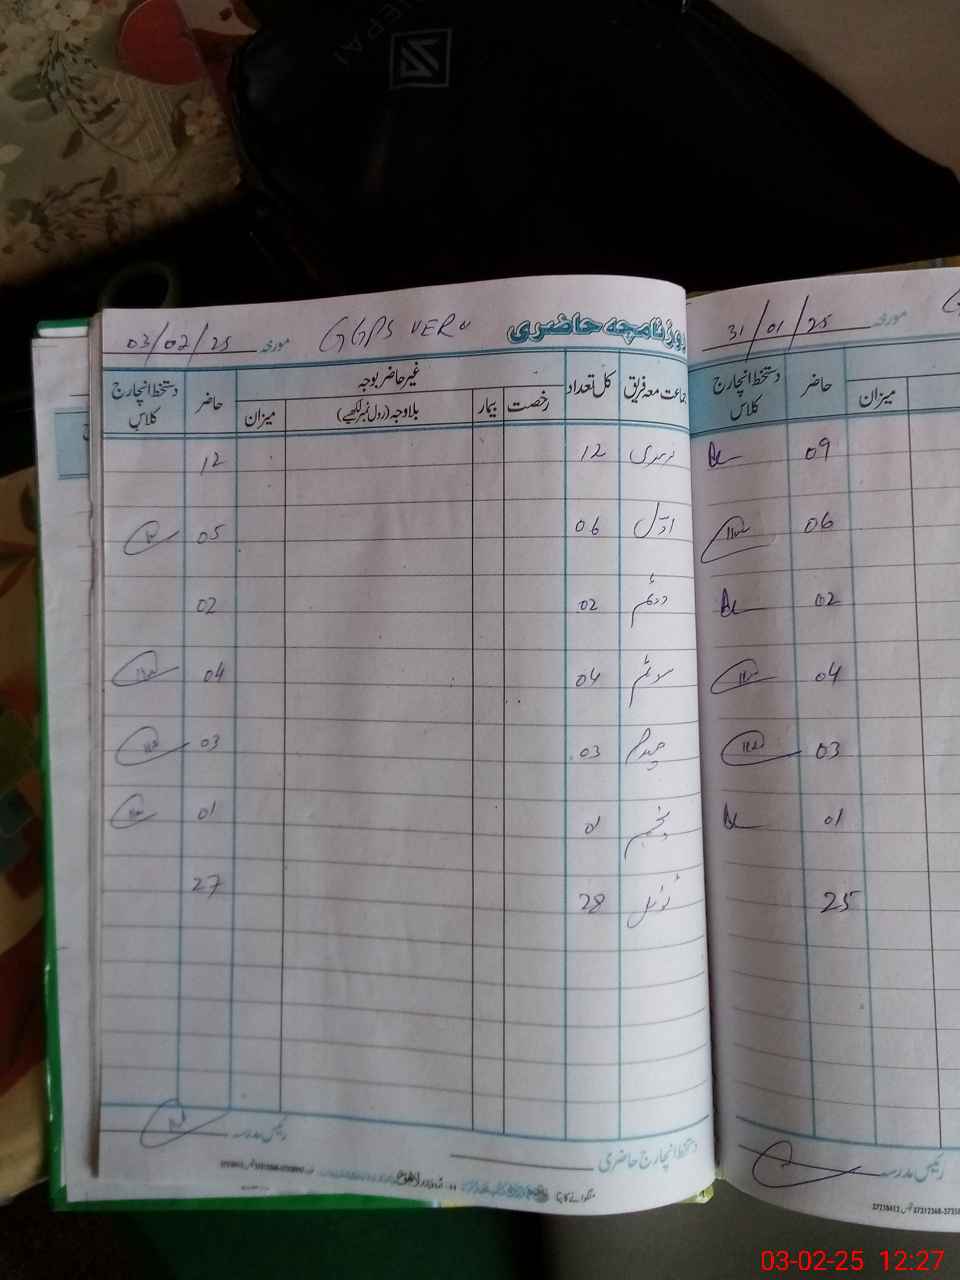 روزنامچہ حاضری GGPS VERU مورخہ 03/02/25
جماعت معہ فریق کل تعداد غیر حاضر بوجہ حاضر دستخط انچارج کلاس
رخصت بیمار بلاوجہ (رول نمبر لکھیے) میزان
نرسری 12 12
اوّل 06 05
دوئم 02 02
سوئم 04 04
چہارم 03 03
پنجم 01 01
ٹوٹل 28 27
دستخط انچارج حاضری رئیس مدرسہ
مورخہ 31/01/25
میزان حاضر دستخط انچارج کلاس
09
06
02
04
03
01
25
رئیس مدرسہ
03-02-25 12:27